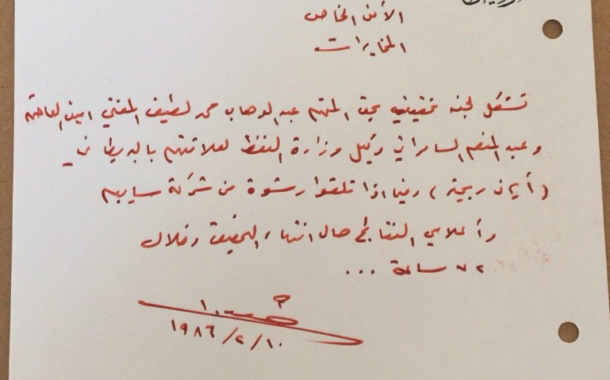 الأمن الخاص
المخابرات
تشكل لجنة تحقيقيه بحق المتهم عبد الوهاب محمد لطيف المفتي امين العاصمة
وعبد المنعم السامرائي وكيل وزارة النفط لعلاقتهم بالبريطاني
(أيان ريجتر) وفيما اذا تلقوا رشوة من شركة سايبم
وأعلامي النتائج حال انتهاء التحقيق وخلال
٧٢ ساعة ...
١٩٨٦/٢/١٠